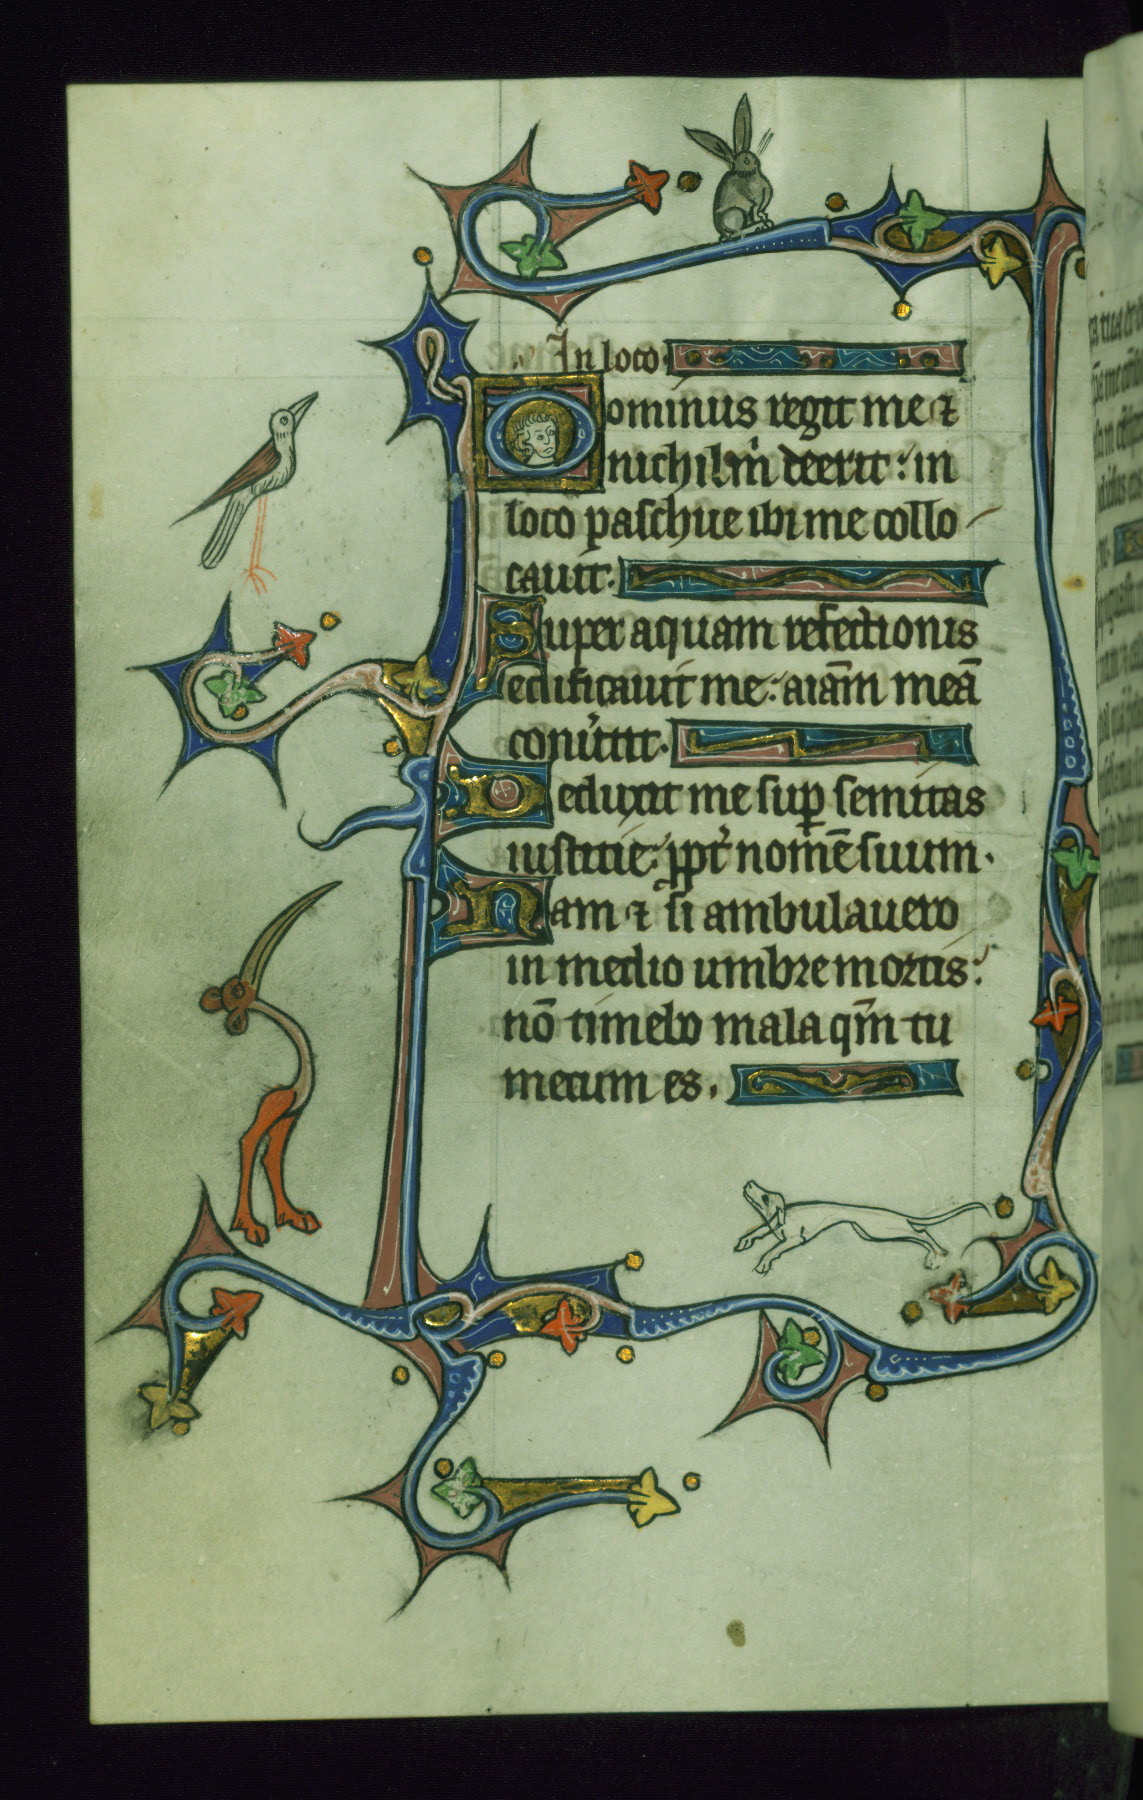 In loco.
Dominus regit me ⁊
nichil m̊ deerit: in
loco paschue ibi me collo
cauit.
Super aquam refectionis
edificauit me: aiām meā
conũtit.
Deduxit me sup̱ semitas
iustitie: ꝓpt̉ nom̄e suum.
Nam ⁊ si ambulauero
in medio umbre mortis:
nō timebo mala qm̄ tu
mecum es.